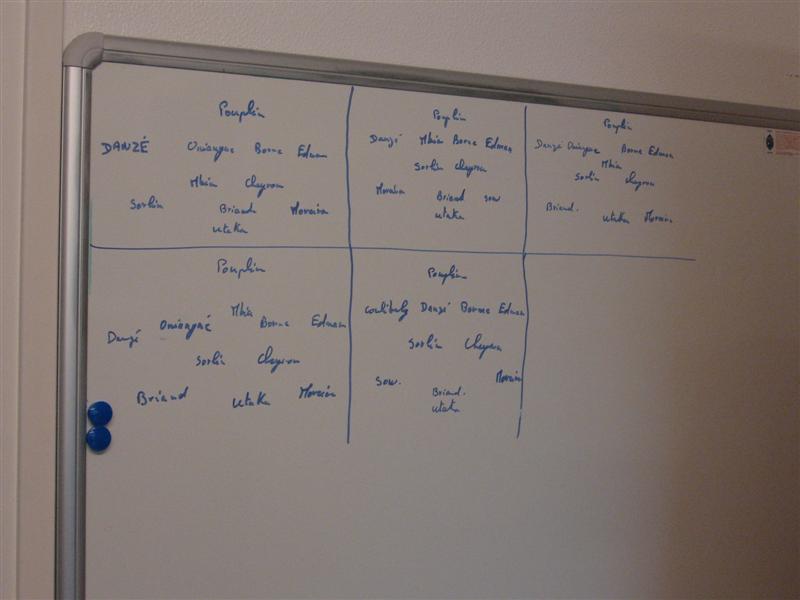 Pouplin
DANZÉ Oniangue Borne Edman
Mbia Cheyrou
Sorlin Briand Moreira
Utaka
Pouplin
Danzé Mbia Borne Edman
Sorlin Cheyrou
Moreira Briand sow
utaka
Pouplin
Danzé Oniangue Borne Edman
Mbia
Sorlin Cheyrou
Briand. utaka Moreira
Pouplin
Mbia
Danzé Oniangué Borne Edman
Sorlin Cheyrou
Briand utaka Moreira
Pouplin
coulibaly Danzé Borne Edman
Sorlin Cheyrou
sow. Moreira
Briand.
utaka